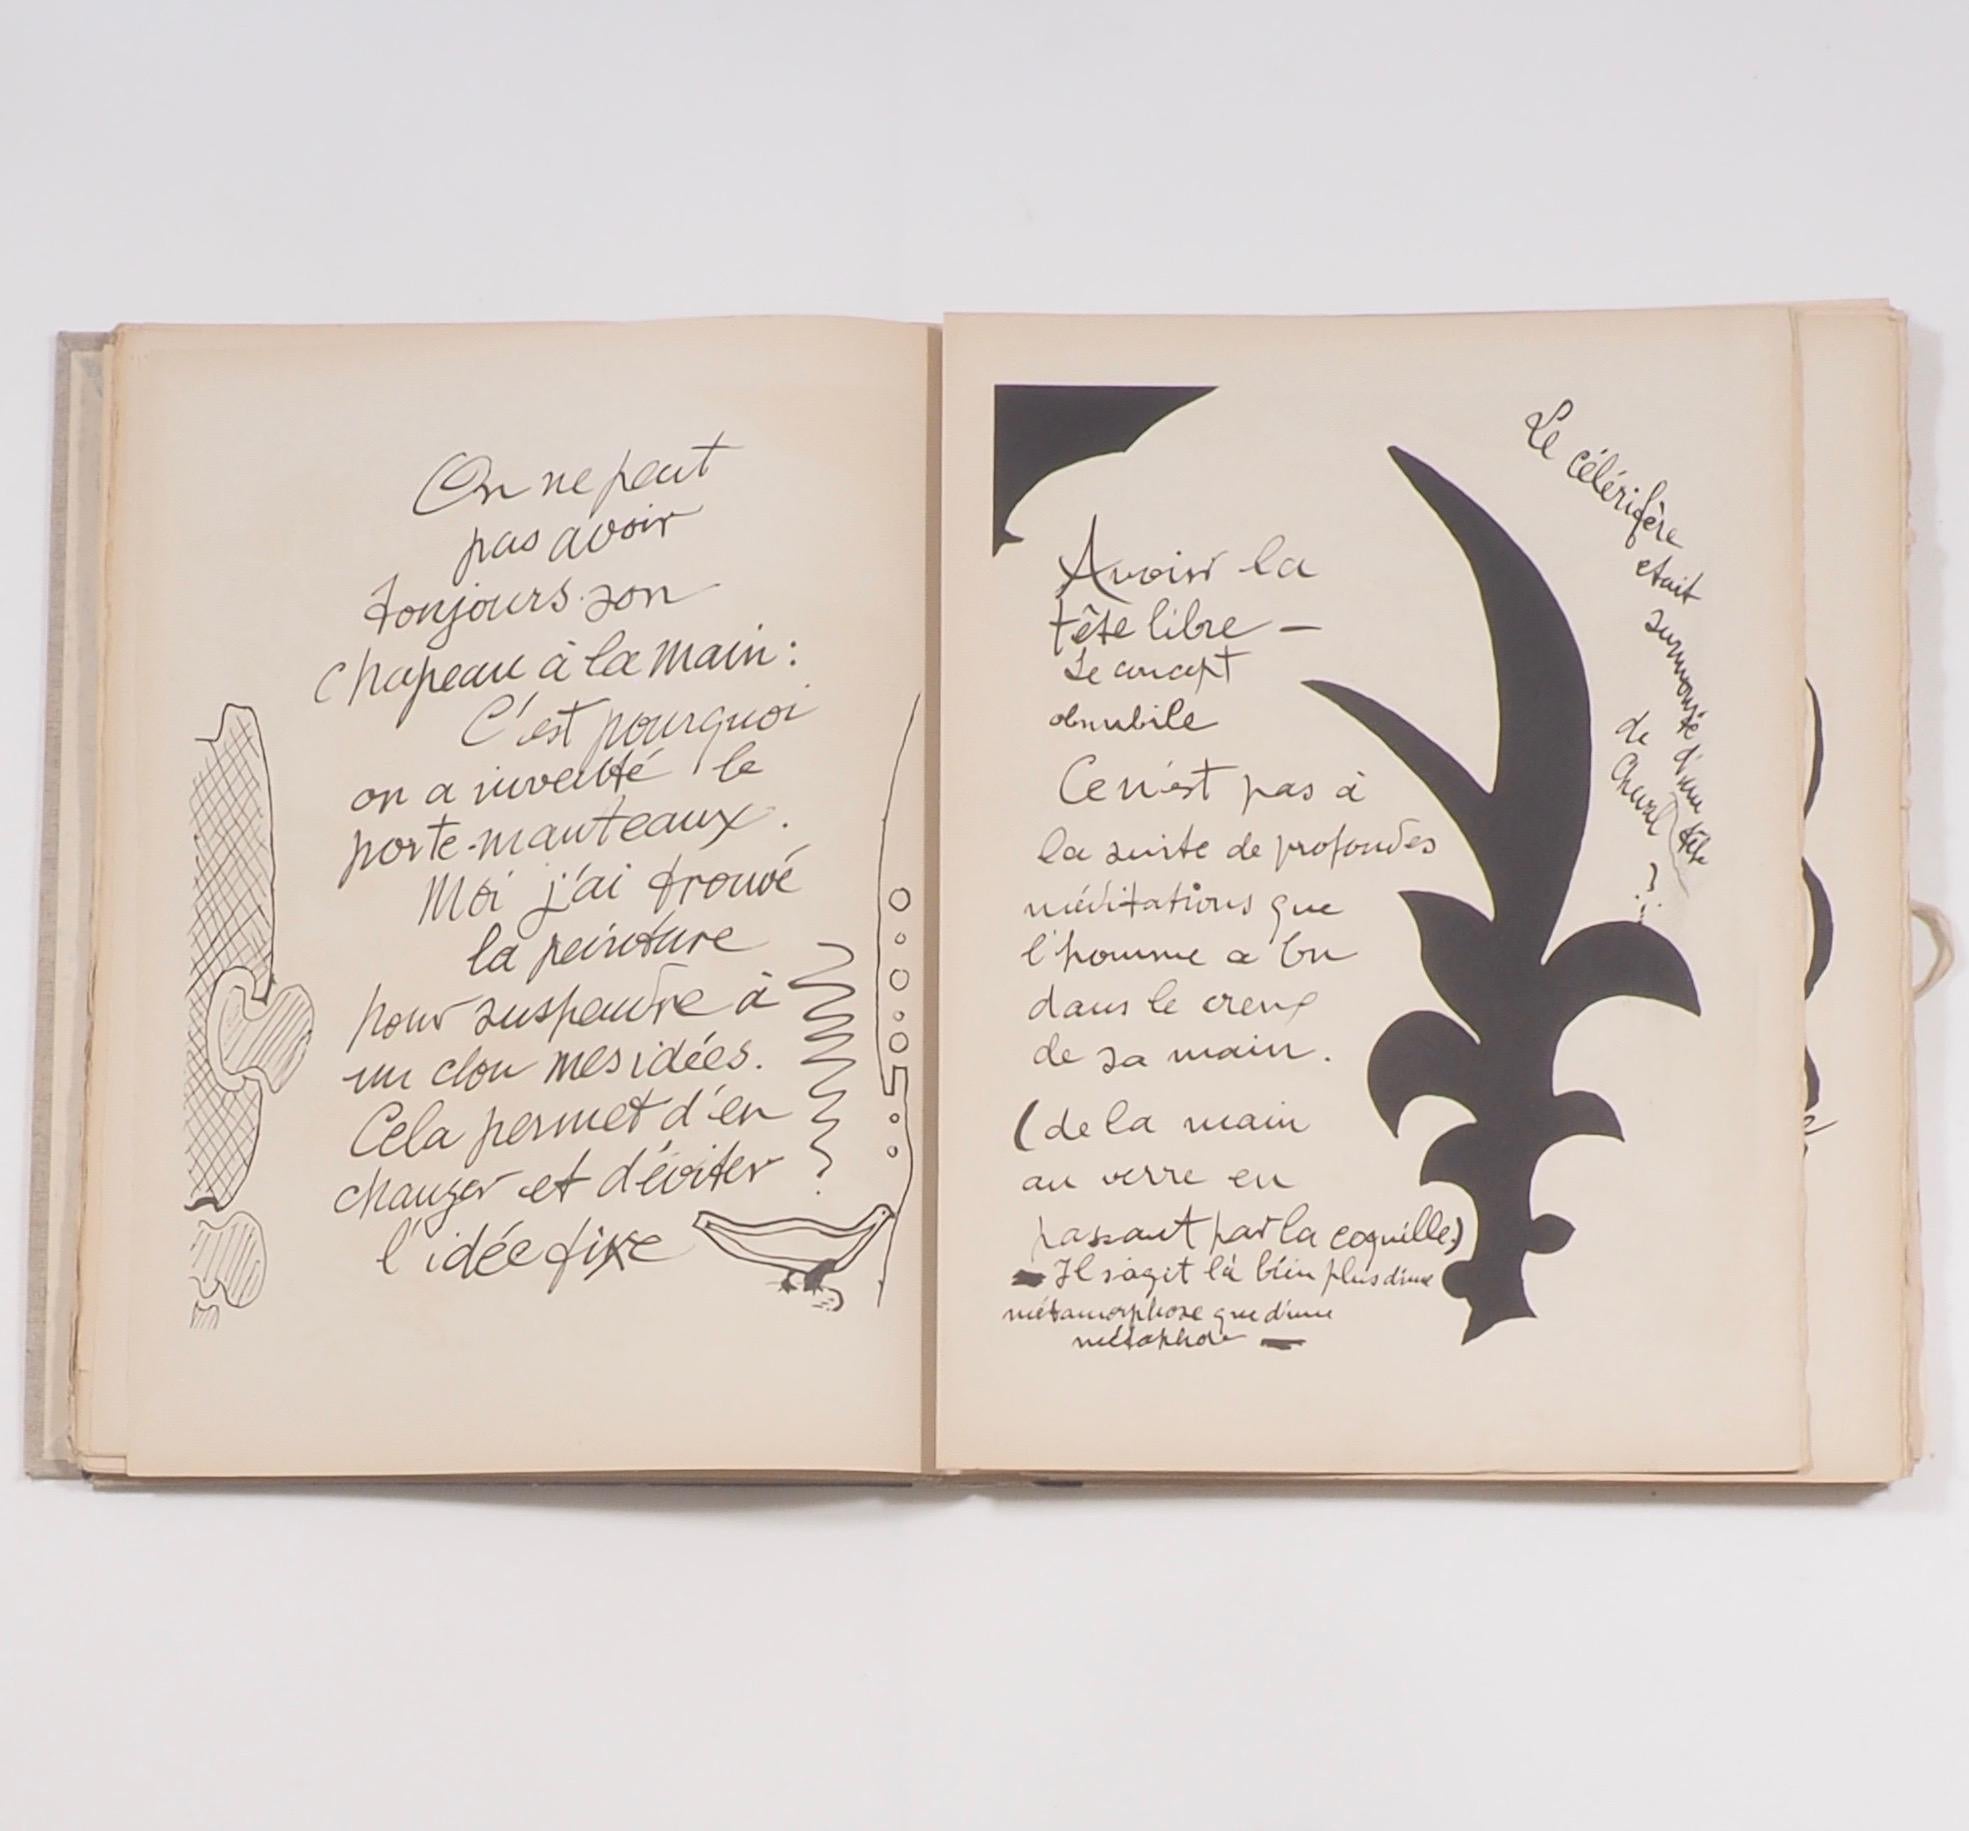 On ne peut
pas avoir
toujours son
chapeau à la main :
C'est pourquoi
on a inventé le
porte-manteaux.
Moi j'ai trouvé
la peinture
pour suspendre à
un clou mes idées.
Cela permet d'en
changer et d'éviter
l'idée fixe
Avoir la
tête libre —
Le concept
obnubile
Ce n'est pas à
la suite de profondes
méditations que
l'homme a bu
dans le creux
de sa main.
(de la main
au verre en
passant par la coquille)
— Il s'agit là bien plus d'une
métamorphose que d'une
métaphore —
Le célérifère
était
surmonté d'une tête
de
Cheval
?